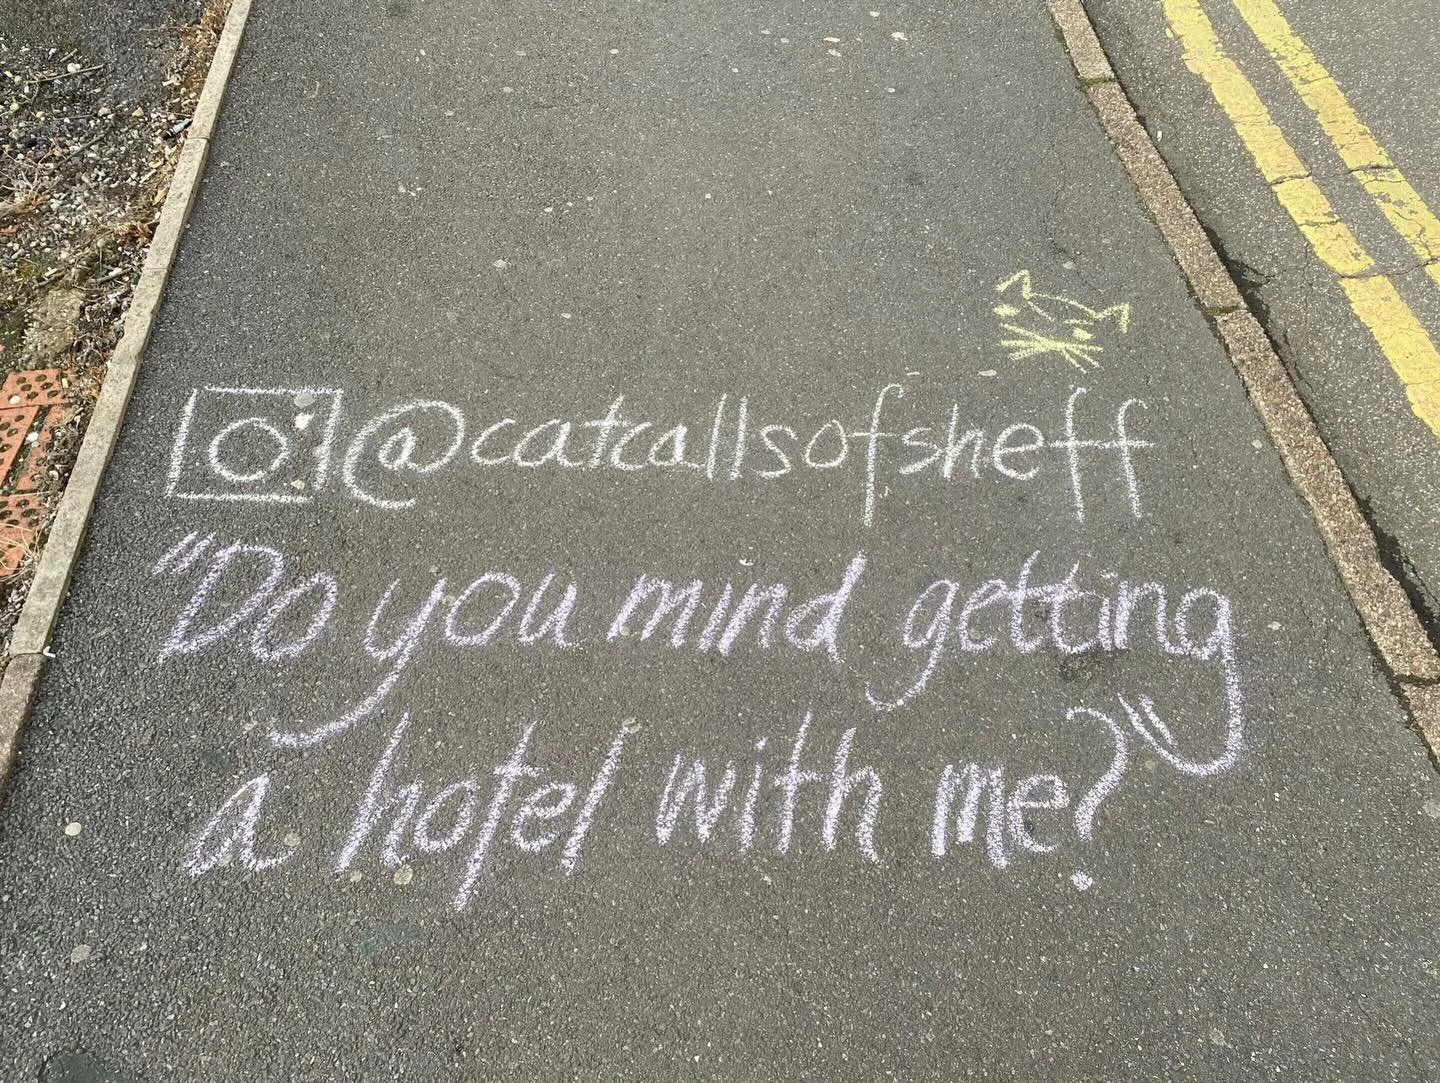 @catcallsofsheff
"Do you mind getting
a hotel with me?"